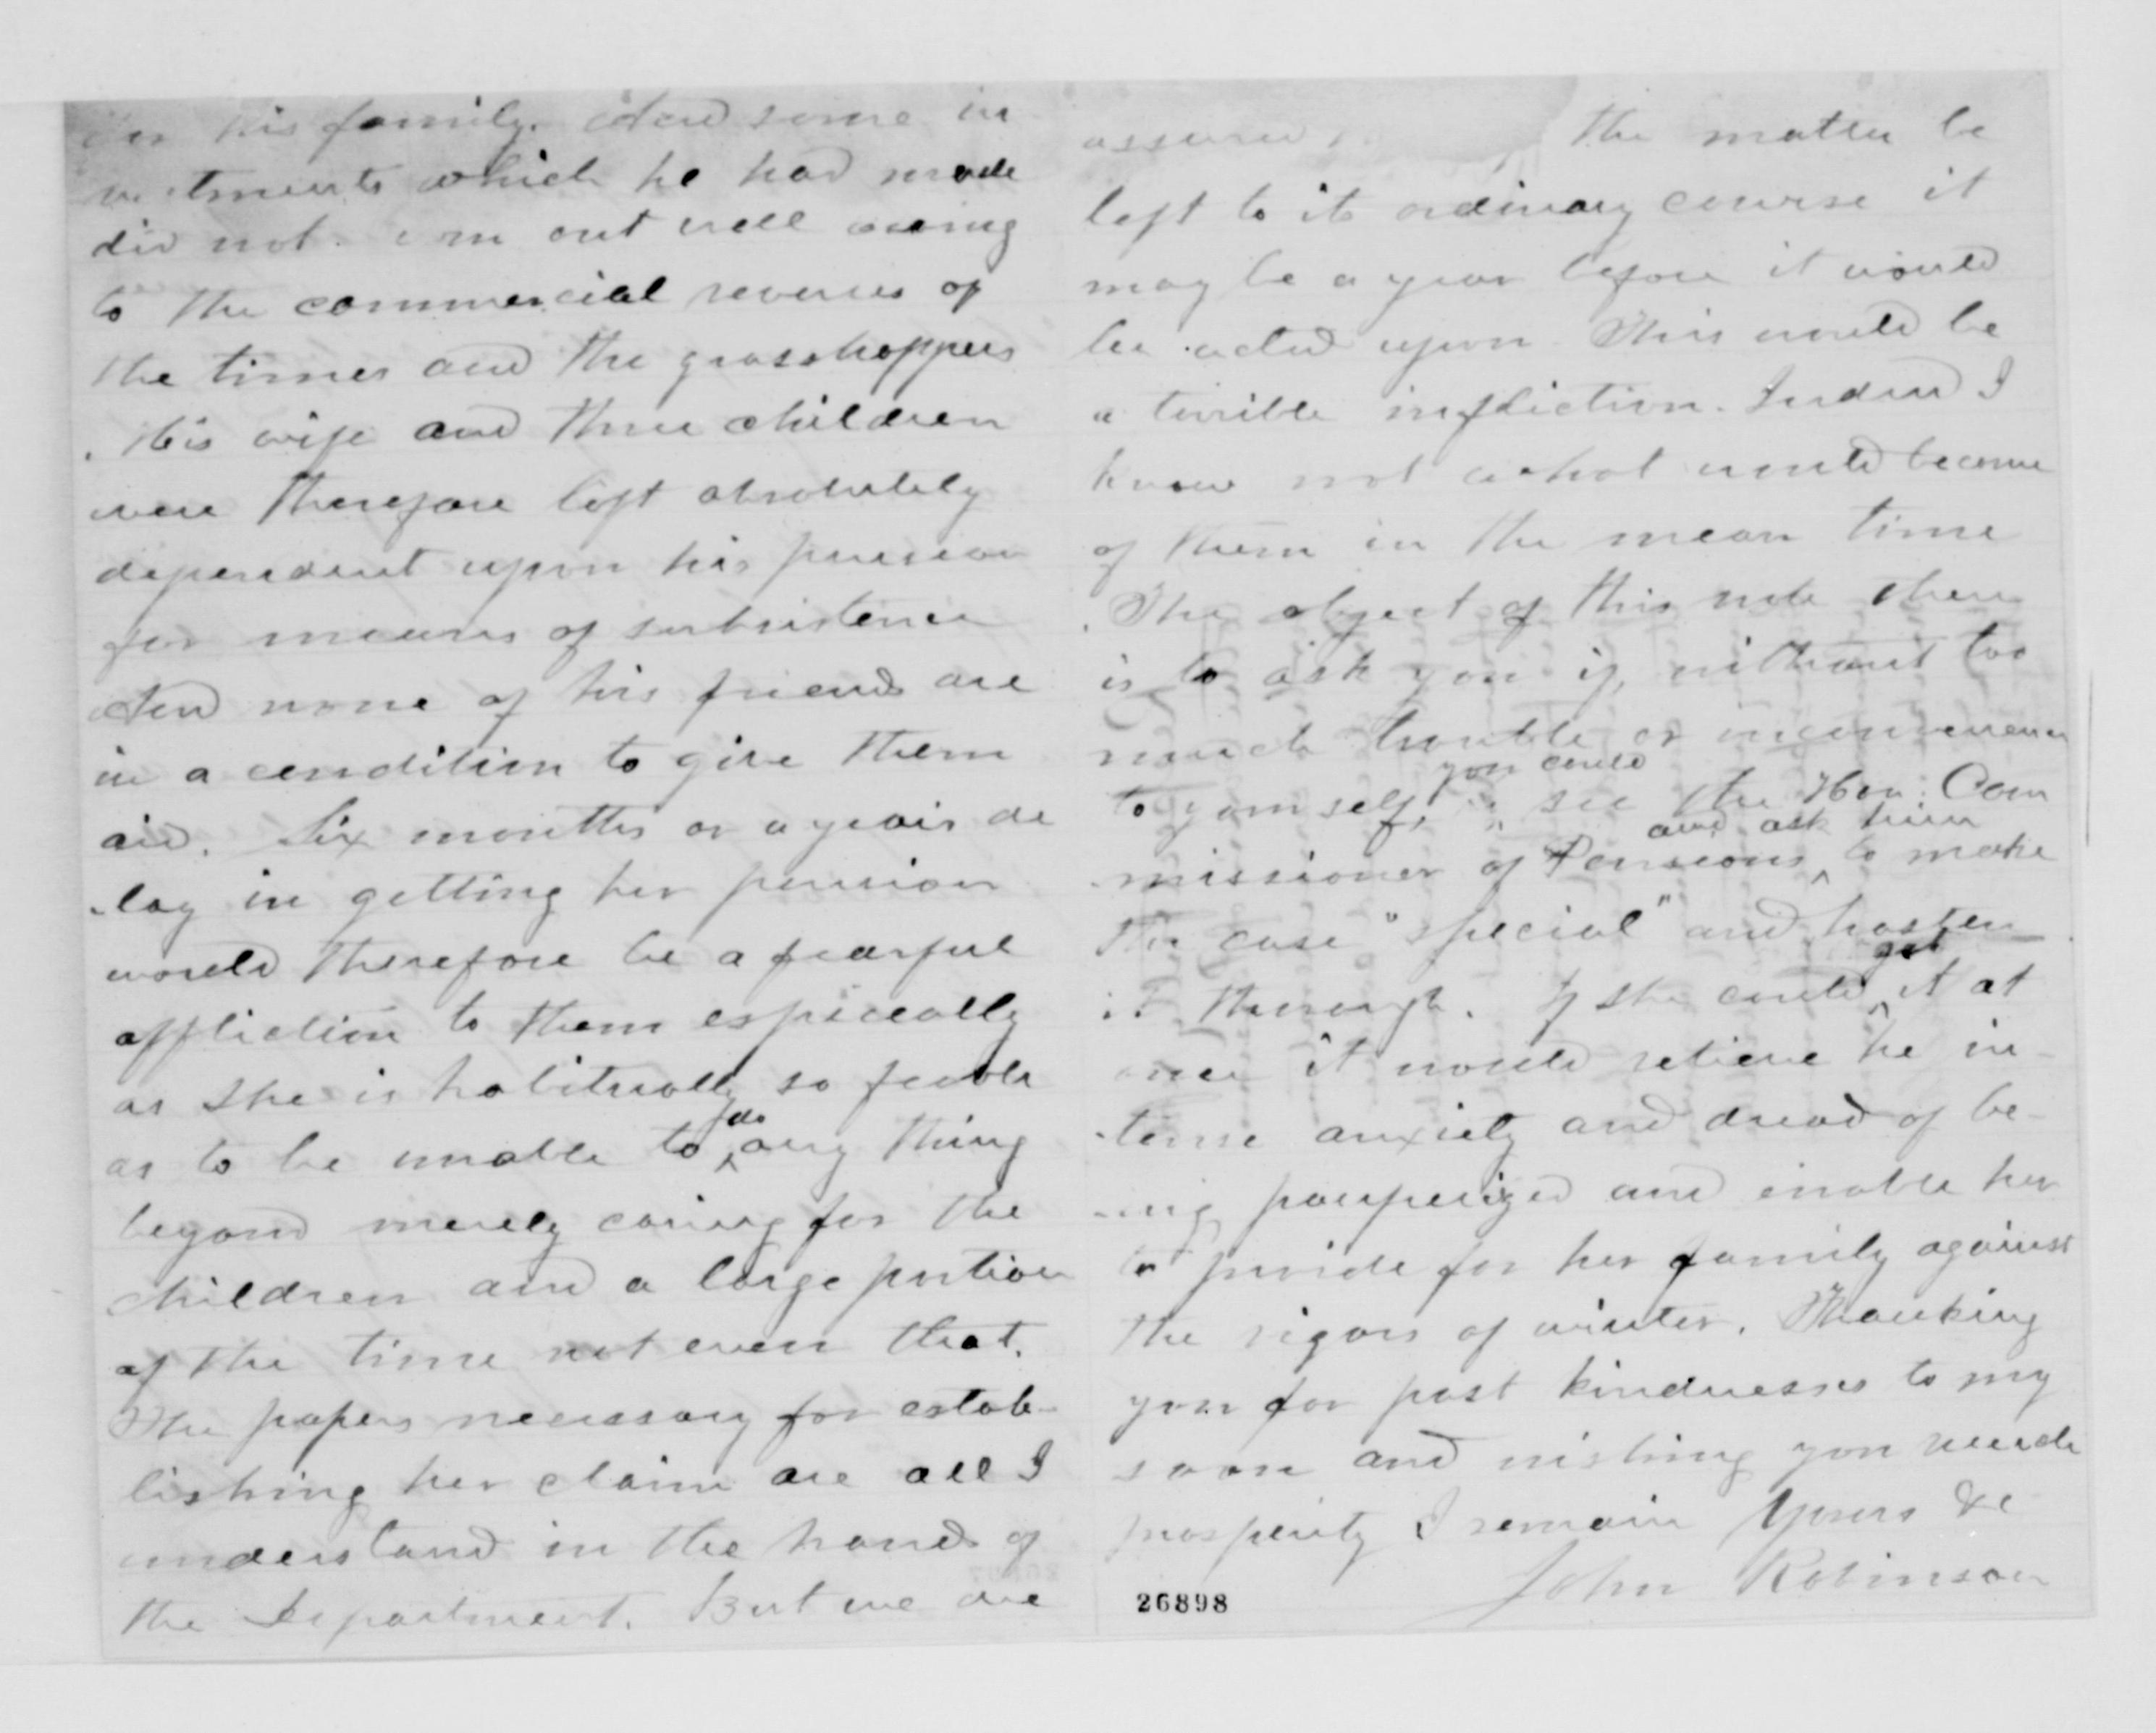 for his family. And some in
vestments which he had made
did not turn out well owing
to the commercial reverses of
the times and the grasshoppers
. His wife and three children
were therefore left absolutely
dependent upon his pension
for means of subsistence
And none of his friends are
in a condition to give them
aid. Six months or a years de
-lay in getting her pension
would therefore be a fearful
affliction to them especially
as she is habitually so feeble
as to be unable to do any thing
beyond merely caring for the
children and a large portion
of the time not even that.
The papers necessary for estab-
lishing her claim are all I
understand in the hands of
the Department. But we are
assured the matter be
left to its ordinary course it
may be a year before it would
be acted upon. This would be
a terrible infliction. Indeed I
know not what would become
of them in the mean time
. The object of this note then
is to ask you if, without too
much trouble or inconvenience
to yourself, you could see the Hon. Com
missioner of Pensions and ask him to make
the case "special" and hasten
it through. If she could get it at
once it would relieve he in
-tense anxiety and dread of be-
-ing pauperized and enable her
to provide for her family against
the rigors of winter. Thanking
you for past kindnesses to my
soon and wishing you much
prosperity I remain Yours &c
John Robinson
26898